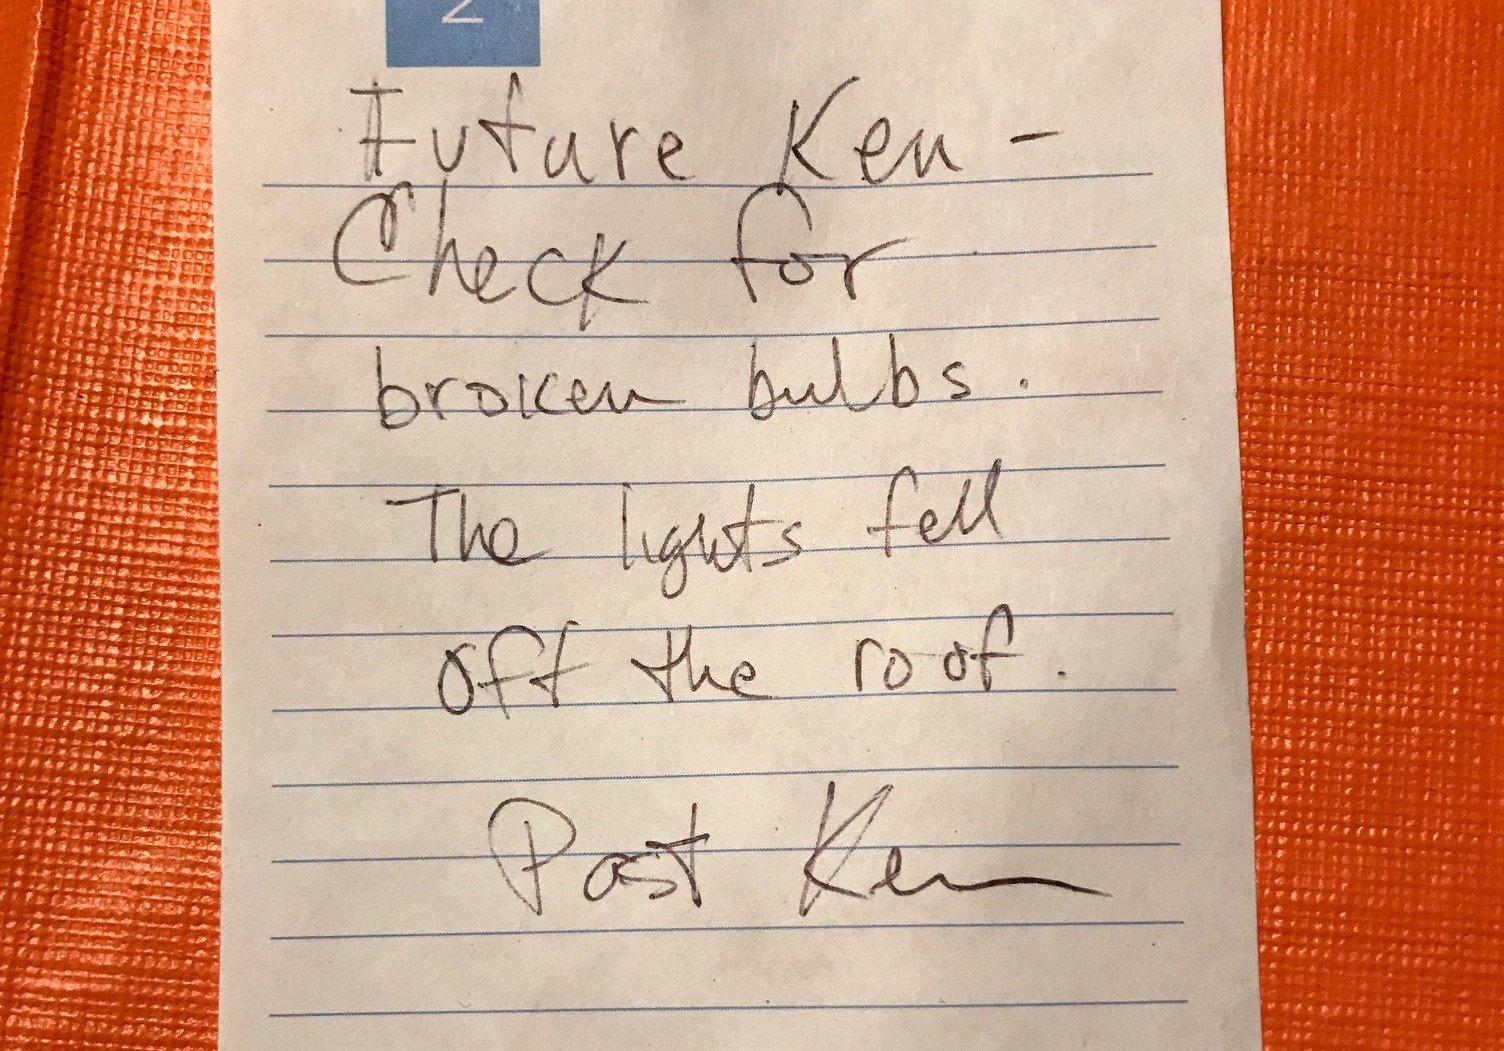 2
Future Ken -
Check for
broken bulbs.
The lights fell
off the roof.
Past Ken